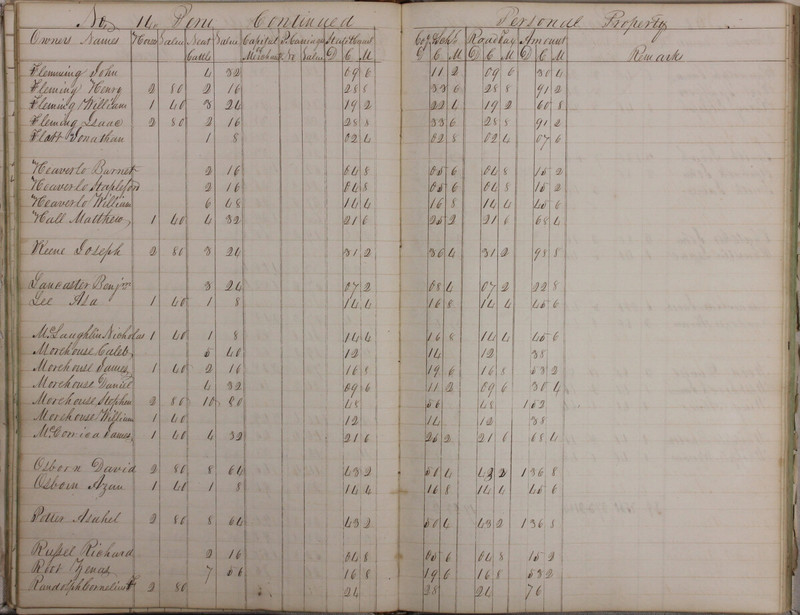 No. 14. Penn Continued Personal Property
Owners Names Horses Value Neat Cattle Value Capital of Merchants P. Carriages &c Value D C M D C M Road Tax D C M Amount D C M Remarks
Flemming John 4 32 09 6 11 2 09 6 30 4
Fleming Henry 2 80 2 16 28 8 33 6 28 8 91 2
Fleming William 1 40 3 24 19 2 22 4 19 2 60 8
Fleming Isaac 2 80 2 16 28 8 33 6 28 8 91 2
Flatt Jonathan 1 8 02 4 02 8 02 4 07 6
Heaverlo Barnet 2 16 04 8 05 6 04 8 15 2
Heaverlo Stapleford 2 16 04 8 05 6 04 8 15 2
Heaverlo William 6 48 14 4 16 8 14 4 45 6
Hall Matthew 1 40 4 32 21 6 25 2 21 6 68 4
Keene Joseph 2 80 3 24 31 2 36 4 31 2 98 8
Lancaster Benjn 3 24 07 2 08 4 07 2 22 8
Lee Asa 1 40 1 8 14 4 16 8 14 4 45 6
McLaughlin Nicholas 1 40 1 8 14 4 16 8 14 4 45 6
Morehouse Caleb 5 40 12 14 12 38
Morehouse James 1 40 2 16 16 8 19 6 16 8 53 2
Morehouse Daniel 4 32 09 6 11 2 09 6 30 4
Morehouse Stephen 2 80 10 80 48 56 48 1 52
Morehouse William 1 40 12 14 12 38
James 1 40 4 32 21 6 25 2 21 6 68 4
Osborn David 2 80 8 64 43 2 50 4 43 2 1 36 8
Osborn 1 40 1 8 14 4 16 8 14 4 45 6
Potter Asahel 2 80 8 64 43 2 50 4 43 2 1 36 8
Russel Richard 2 16 04 8 05 6 04 8 15 2
Root Zenas 7 56 16 8 19 6 16 8 53 2
Randolph Cornelius 2 80 24 28 24 76